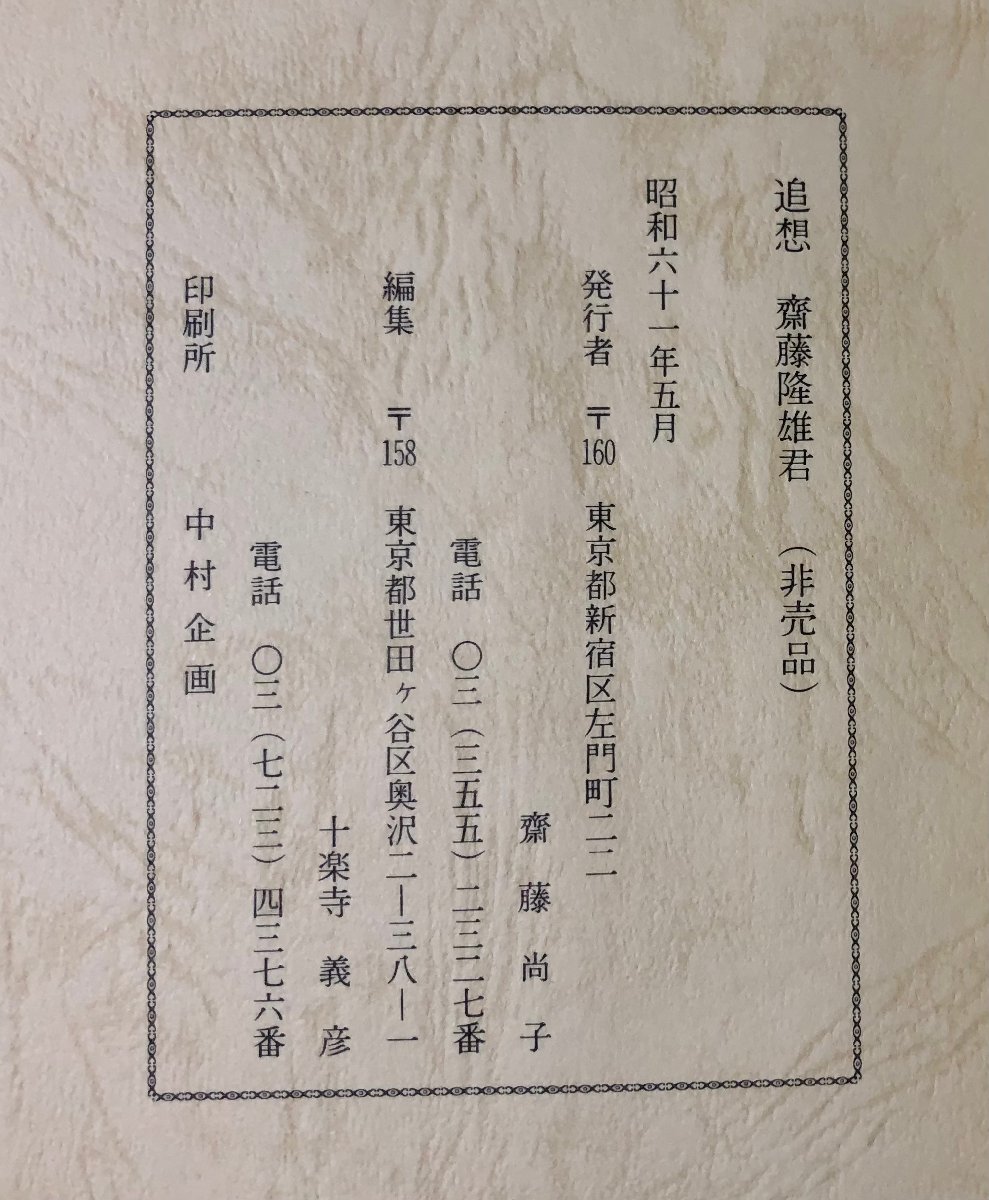 追想　齋藤隆雄君　（非売品）
昭和六十一年五月
発行者　〒160　東京都新宿区左門町二二
齋藤尚子
電話　〇三（三五五）二三二七番
編集　〒158　東京都世田ヶ谷区奥沢二―三八―一
十楽寺義彦
電話　〇三（七二三）四三七六番
印刷所　中村企画